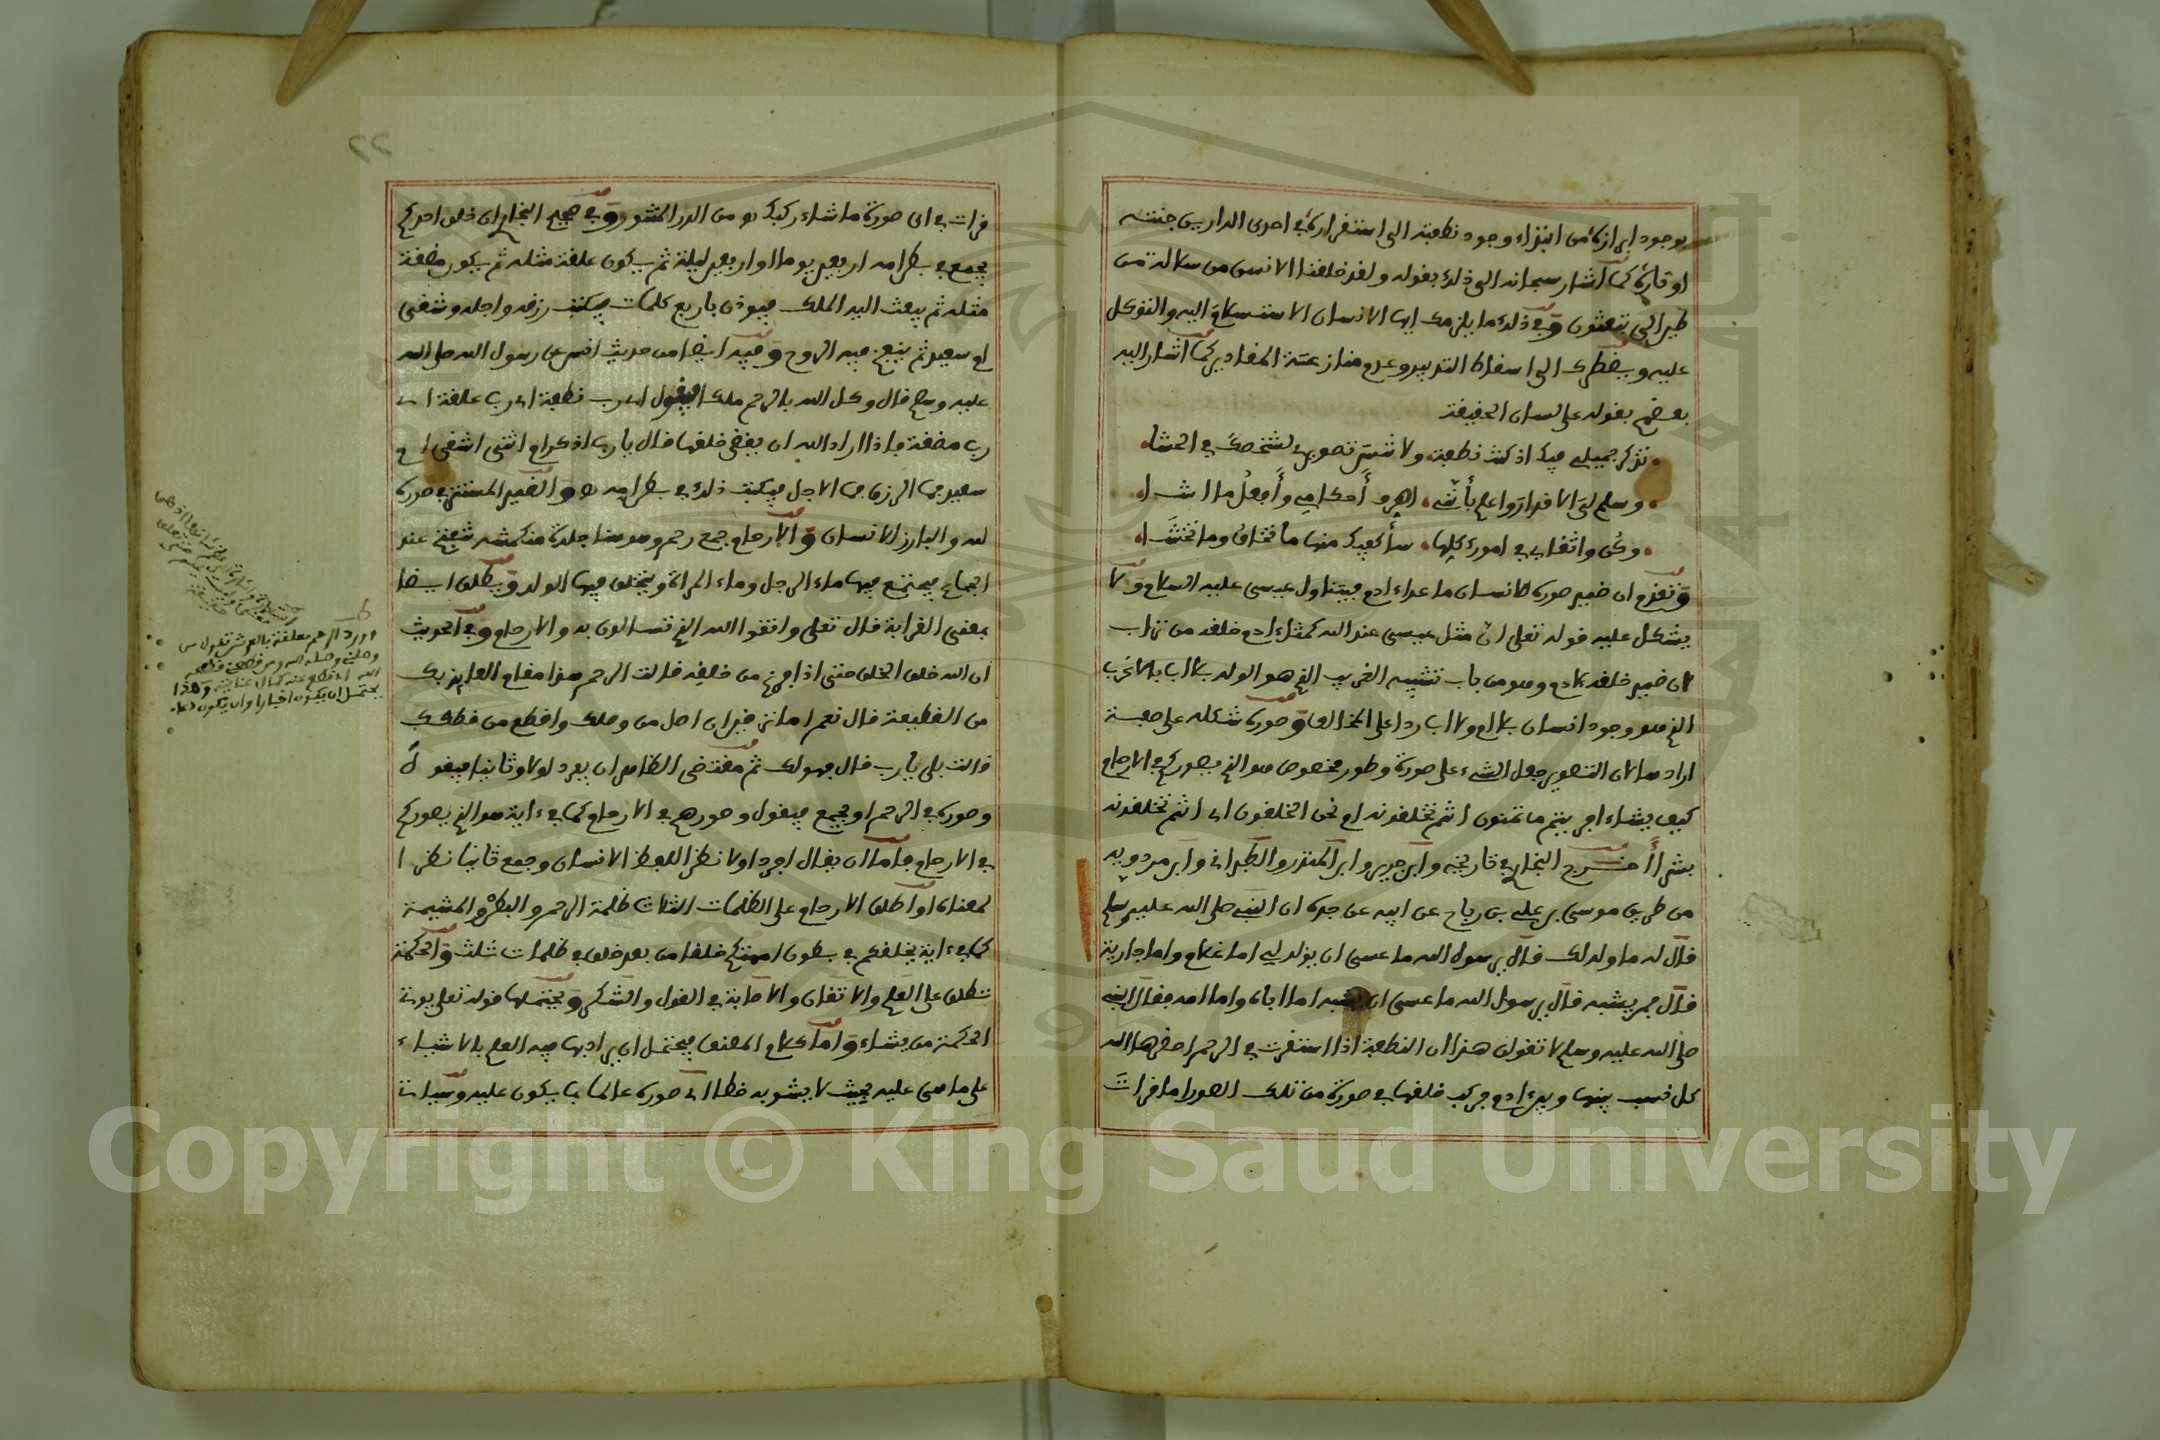 بوجود ابرازك من ابتداء وجود نطفته الى استقرارك في احدى الدارين جنته
او ناره كما اشار سبحانه الى ذلك بقوله ولقد خلقنا الانسن من سلالة من
طين الى تبعثون وفي ذلك ما يلزمك ايها الانسان الاستسلام اليه والتوكل
عليه ويضطرك الى اسقاط التدبير وعدم منازعة المقادير كما اشار اليه
بعضهم بقوله على لسان الحقيقة
تذكر جميلي فيك اذ كنت نطفة ولا تنس تصويري لشخصك في الحشا
وسلم لى الاقدار واعلم بأنني اصرف أحكامي وأفعل ما اشا
وكن واثقا بي في امورك كلها سأكفيك منها ما تخاف وما تخشا
وتقدم ان ضمير صوره للانسان ما عداء ادم فيتناول عيسى عليه السلام ولا
يشكل عليه قوله تعلى ان مثل عيسى عند الله كمثل ادم خلقه من تراب
لان ضمير خلقه لادم وهو من باب تشبيه الغريب الذي هو الولد بلا اب بالاغرب
الذي هو وجود انسان بلا ام ولا اب ردا على المخالف وصوره شكله على صفة
ارادها لان التصوير جعل الشيء على صورة وطور مخصوص هو الذي يصوركم في الارحام
كيف يشاء افريتم ما تمنون انتم تخلقونه ام نحن الخلقون اى انتم تخلقونه
بشرا أخرج البخاري في تاريخه وابن جرير وابن المنذر والطبراني وابن مردويه
من طريق موسى بن علي بن رباح عن ابيه عن جده ان النبي صلى الله عليه وسلم
قال له ما ولد لك قال يرسول الله ما عسى ان يولد لي اما غلام واما جارية
قال فمن يشبه قال يرسول الله ما عسى ان يشبه اما اباه واما امه فقال النبي
صلى الله عليه وسلم لا تقولن هذا ان النطفة اذا استقرت في الرحم احضرها الله
كل نسب بينها وبين ادم فركب خلقها في صورة من تلك الصور اما قرات
٢٢
قرات في اى صورة ما شاء ركبك هو من الدر المنثور وفي صحيح البخاري ان خلق احدكم
يجمع في بطن امه اربعين يوما او اربعين ليلة ثم يكون علقة مثله ثم يكون مضغة
مثله ثم يبعث اليه الملك فيوذن باربع كلمات فيكتب رزقه واجله وشقي
ام سعيد ثم ينفخ فيه الروح وفيه ايضا من حديث انس عن رسول الله صلى الله
عليه وسلم قال وكل الله بالرحم ملكا فيقول اى رب نطفة اى رب علقة اى
رب مضغة فاذا اراد الله ان يقضي خلقها قال يا رب اذكر ام انثى اشقي ام
سعيد فما الرزق فما الاجل فيكتب ذلك في بطن امه هو والضمير المستتر في صوره
لله والبارز للانسان والارحام جمع رحم وهو هنا جلدة منكمشة تنفتح عند
الجماع فيجتمع فيها ماء الرجل وماء المراة ويتخلق فيها الولد ويطلق ايضا
بمعنى القرابة قال تعلى واتقوا الله الذي تساءلون به والارحام وفي الحديث
ان الله خلق الخلق حتى اذا فرغ من خلقه قالت الرحم هذا مقام العايذ بك
من القطيعة قال نعم اما ترضين ان اصل من وصلك واقطع من قطعك
قالت بلى يا رب قال فهو لك ثم مقتضى الظاهر ان يفرد اولا وثانيا فيقول
وصوره في الرحم او يجمع فيقول وصورهم في الارحام كما في ءاية هو الذي يصوركم
في الارحام فاما ان يقال افرد اولا نظرا للفظ الانسان وجمع ثانيا نظرا
لمعناه او اطلق الارحام على الظلمات الثلاث ظلمة الرحم والبطن والمشيمة
كما في ءاية يخلقكم في بطون امهتكم خلقا من بعد خلق في ظلمات ثلث والحكمة
تطلق على العلم والاتقان والاصابة في القول والشكر ويحتملها قوله تعلى يوتي
الحكمة من يشاء واما كلام المصنف فيحتمل ان يراد بها فيه العلم بالاشياء
على ما هي عليه بحيث لا يشوبه خطا اى صوره عالما بما يكون عليه وسيات
وورد الرحم معلقة بالعرش تقول من
وصلني وصله الله ومن قطعني قطعه
الله اى قطع عنه كمال عنايته وهذا
يحتمل ان يكون اخبارا وان يكون دعاء
Copyright © King Saud University